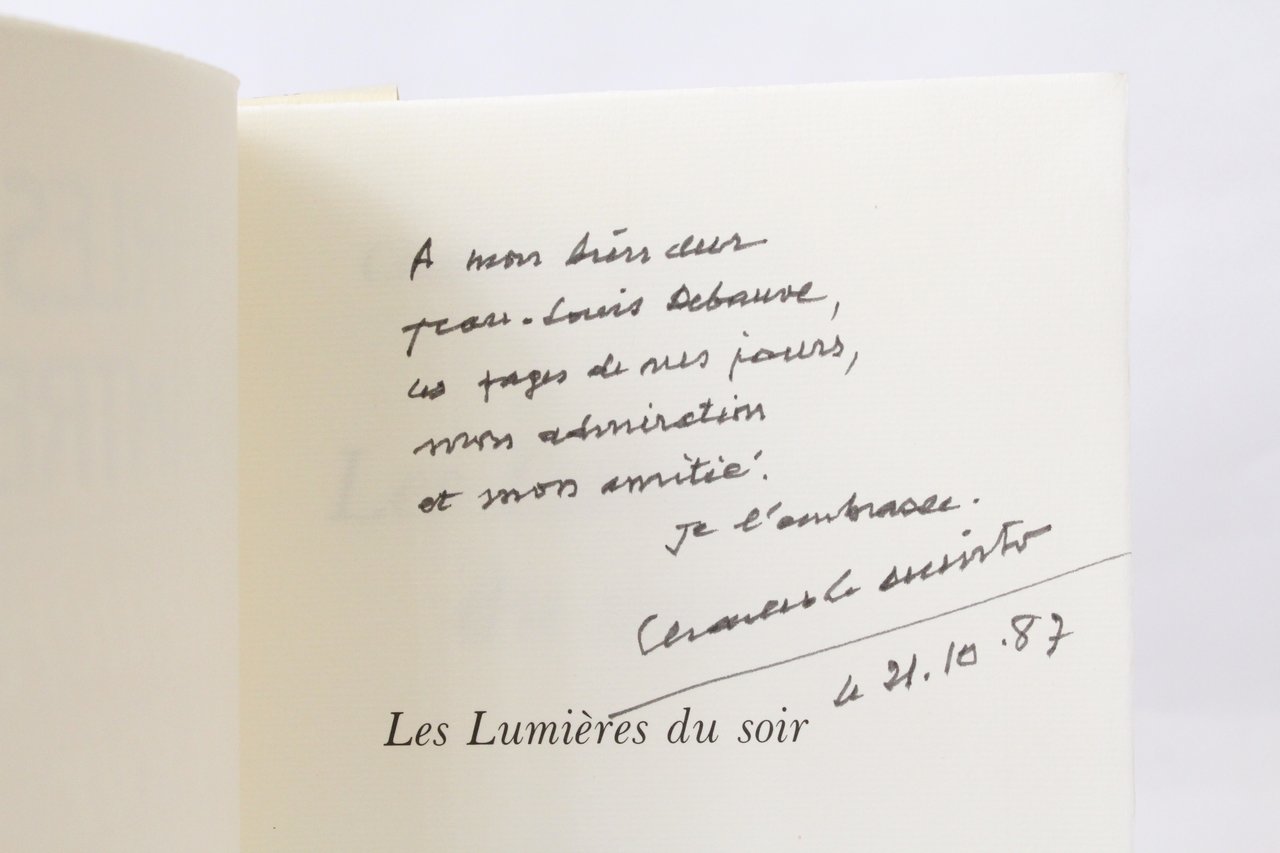 A mon bien cher
Jean-Louis Debauve,
ces pages de nos jours,
mon admiration
et mon amitié.
Je l'embrasse.
le 21.10.87
Les Lumières du soir